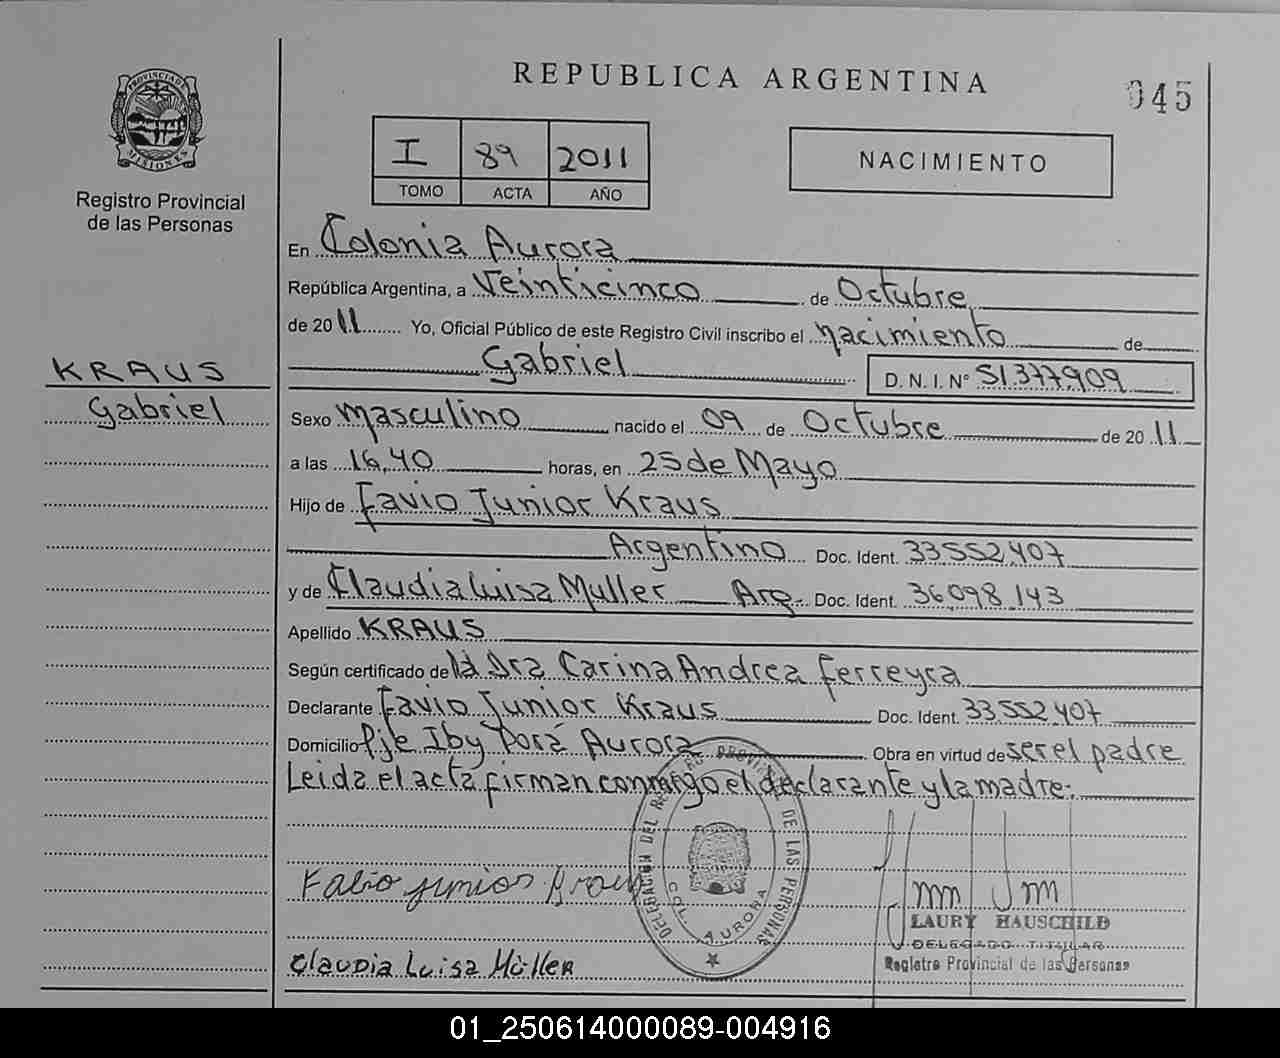 REPUBLICA ARGENTINA
045
PROVINCIA DE MISIONES
Registro Provincial
de las Personas
I 89 2011
TOMO ACTA AÑO
NACIMIENTO
En Colonia Aurora
República Argentina, a Veinticinco de Octubre
de 2011 Yo, Oficial Público de este Registro Civil inscribo el nacimiento de
Gabriel D. N. I. N° 51.377.909
KRAUS
Gabriel
Sexo masculino nacido el 09 de Octubre de 2011
a las 16,40 horas, en 25 de Mayo
Hijo de Favio Junior Kraus
Argentino Doc. Ident. 33.552.407
y de Claudia Luisa Muller Arg. Doc. Ident. 36.098.143
Apellido KRAUS
Según certificado de la Dra Carina Andrea Ferreyra
Declarante Favio Junior Kraus Doc. Ident. 33.552.407
Domicilio Pje Iby Porá Aurora Obra en virtud de ser el padre
Leida el acta firman conmigo el declarante y la madre.
DELEGACION DEL REGISTRO PROVINCIAL DE LAS PERSONAS
COL. AURORA
Fabio junior Kraus
LAURY HAUSCHILD
DELEGADO TITULAR
Registro Provincial de las Personas
Claudia Luisa Müller
01_250614000089-004916